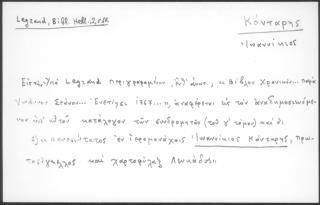 Legrand, Bibl. Hell. 2, σελ.
Κόνταρης
Ἰωαννίκιος
Εἰς τήν, ὑπὸ Legrand περιγραφομένην, ἔνθ' ἀνωτ., « Βίβλον Χρονικὴν... παρὰ
Ἰωάννου Στάνου... Ἐνετίῃσι 1767... », ἀναφέρεται εἰς τὸν ἀναδημοσιευόμενον
ὑπ' αὐτοῦ κατάλογον τῶν συνδρομητῶν (τοῦ γ' τόμου) καὶ ὁ:
ὁ πανοσιώτατος ἐν ἱερομονάχοις Ἰωαννίκιος Κόνταρης, πρω-
τοσύγκελλος καὶ χαρτοφύλαξ Λευκάδος»